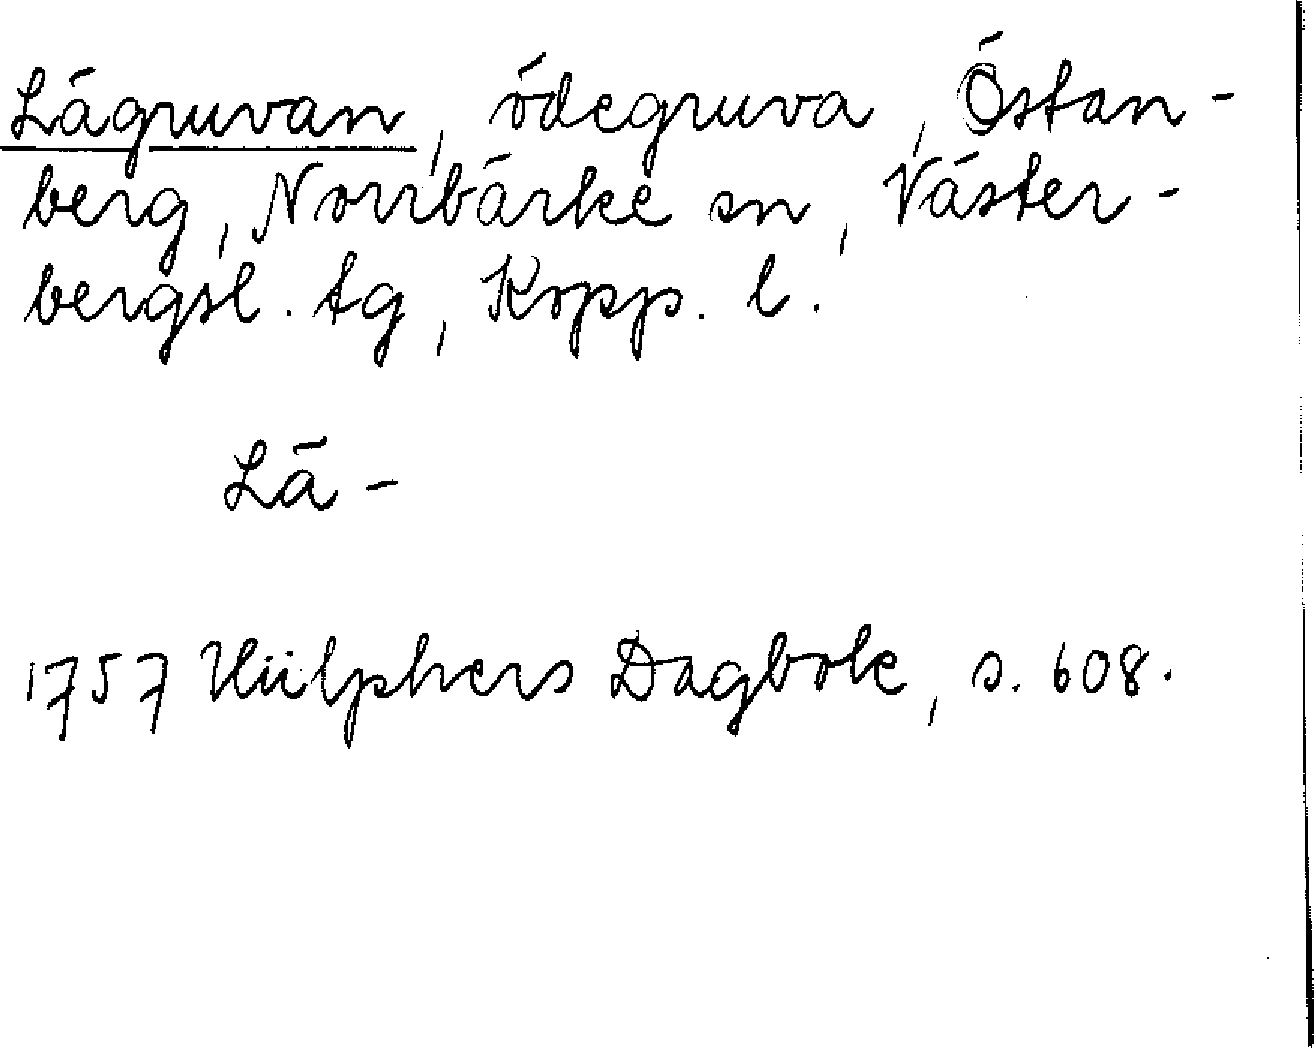 Lägruvan, ödegruva, Östan-
berg, Norrbärke sn, Väster-
bergsl. tg, Kopp. l.
Lä-
1757 Hülphers Dagbok, s. 608.